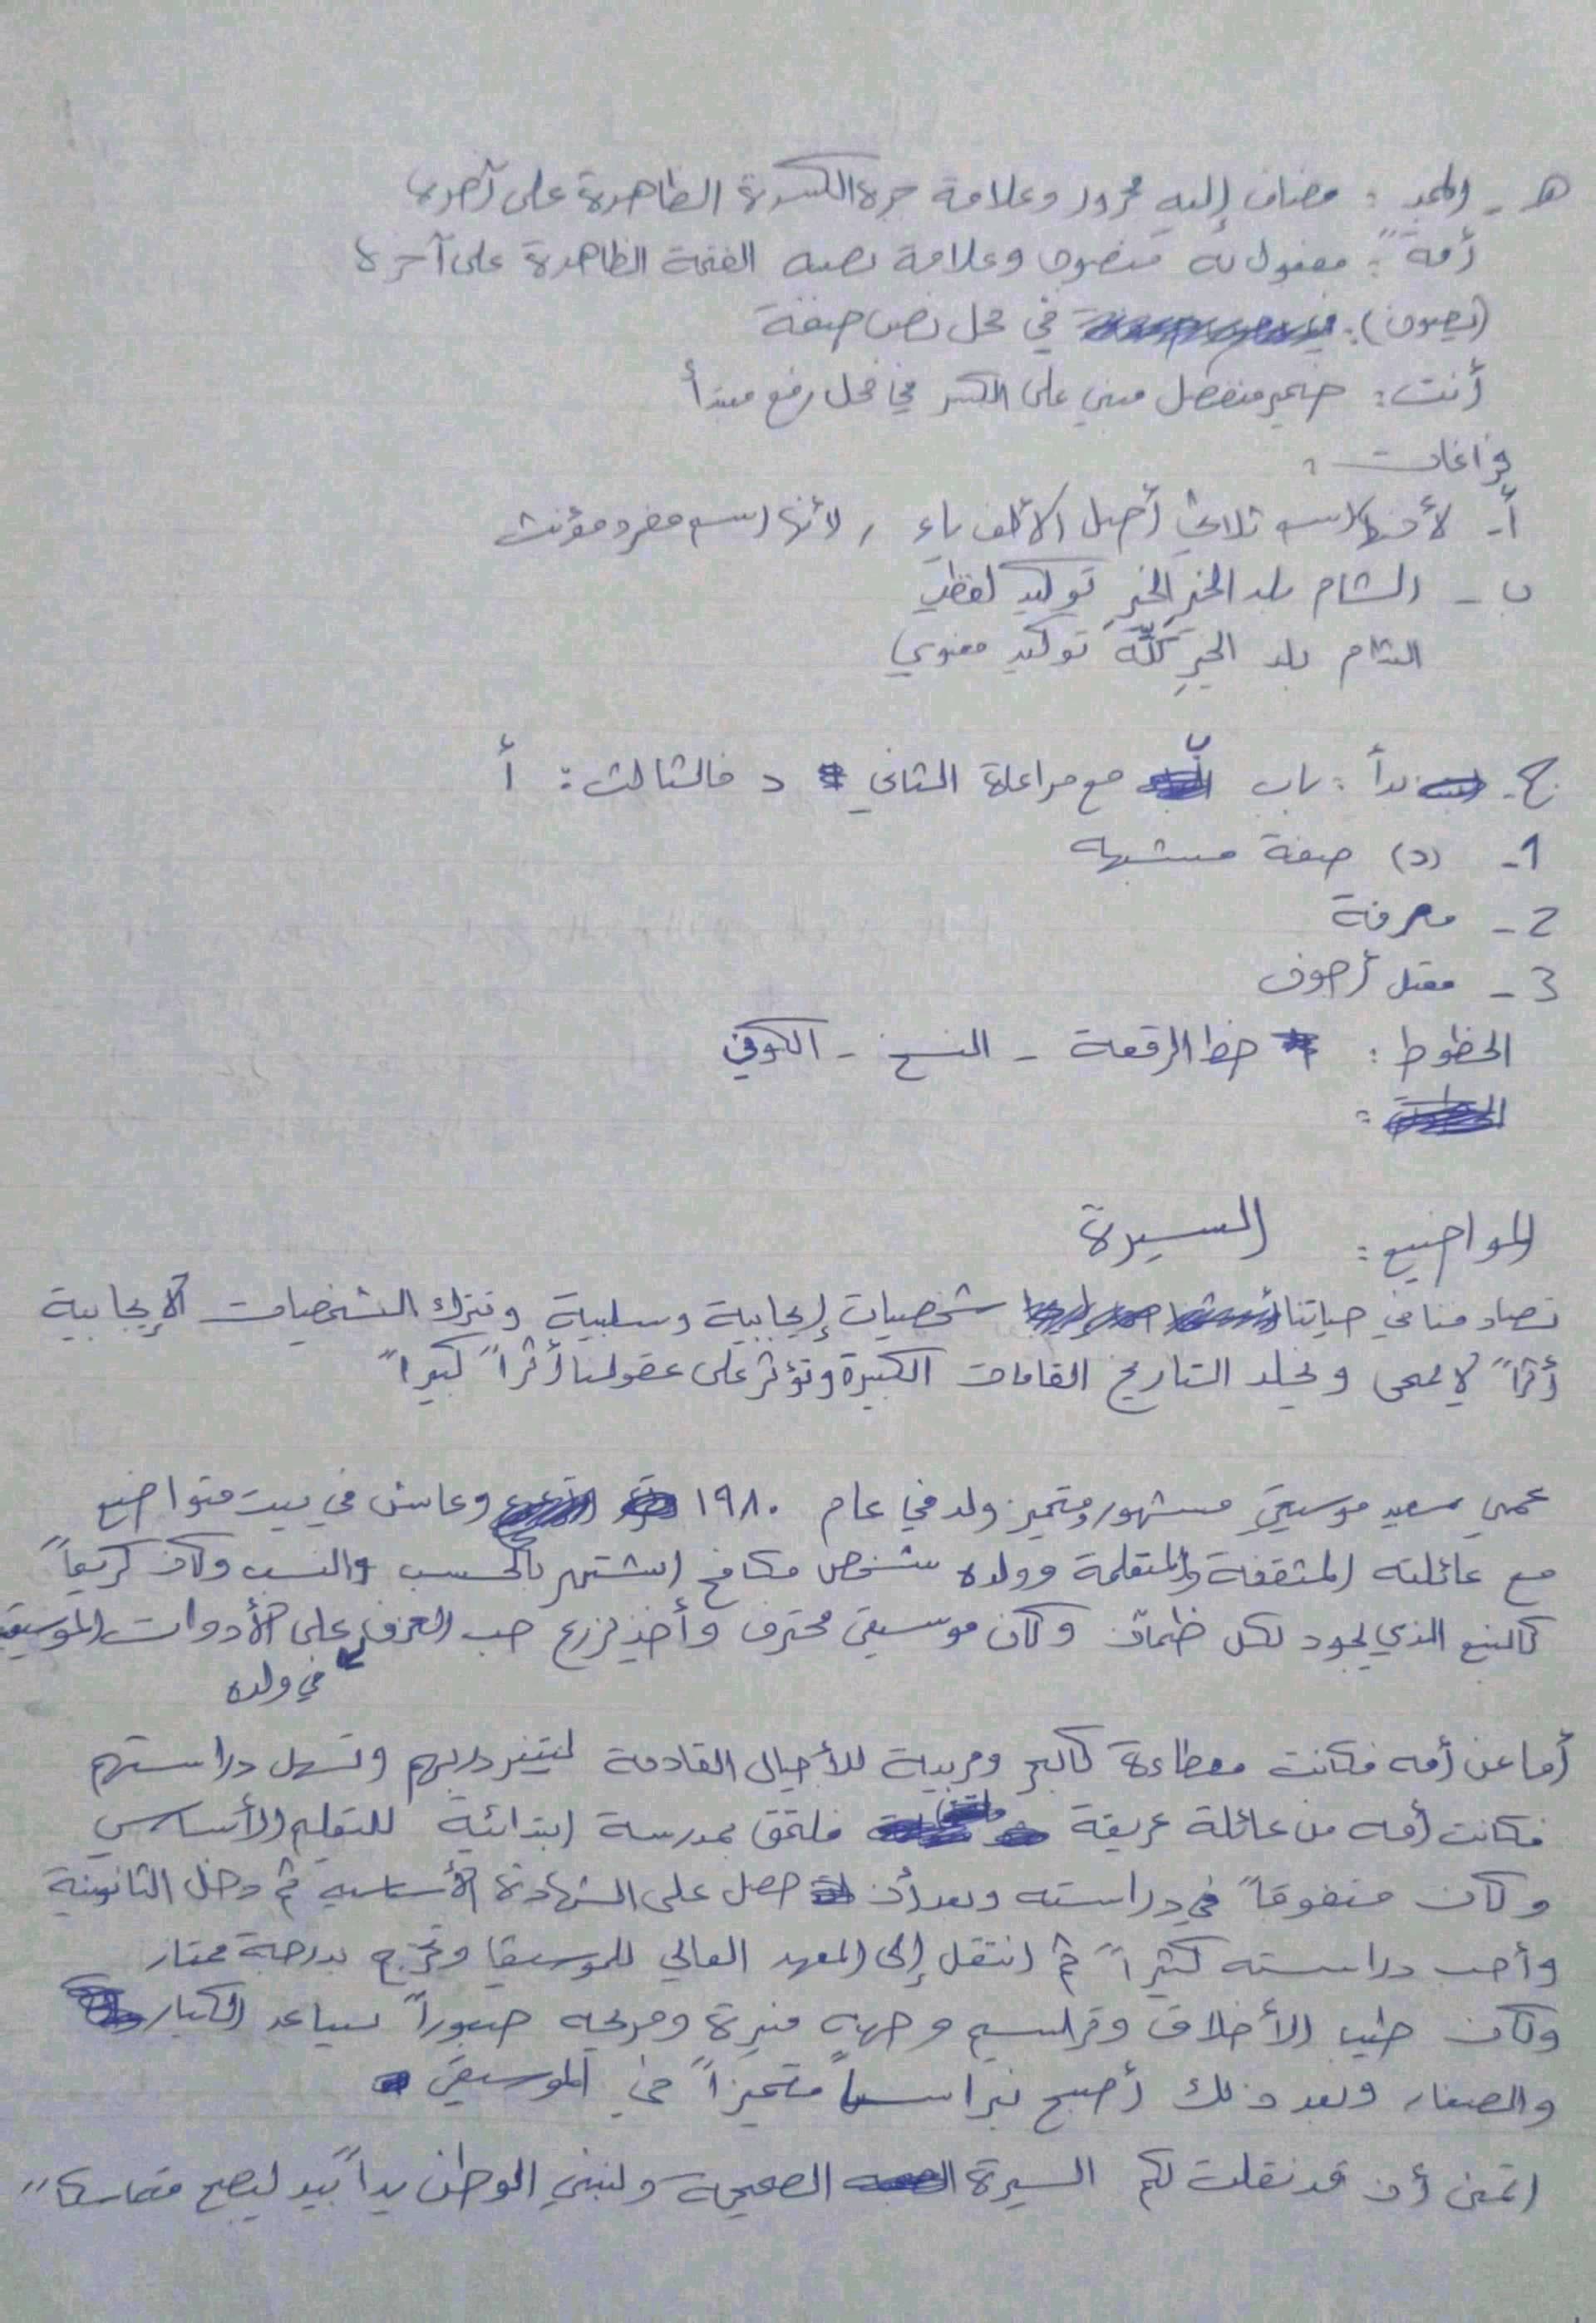 هـ - المجد : مضاف إليه مجرور وعلامة جره الكسرة الظاهرة على آخره
أمةً : مفعول به منصوب وعلامة نصبه الفتحة الظاهرة على آخره
في محل نصب صفة
أنت : ضمير منفصل مبني على الكسر في محل رفع مبتدأ
فراغات :
أ- ثلاثي أصل الألف ياء , لأنها اسم مفرد مؤنث
ب - الشام بلد الخيرِ الخيرِ توكيد لفظي
الشام بلد الخيرِ كلِّه توكيد معنوي
ج- بدأ : باب ب مع مراعاة الثاني د فالثالث : أ
1- (د) صفة مشبهه
2 - معرفة
3 - معتل أجوف
الخطوط : خط الرقعة - النسخ - الكوفي
المواضيع : السيرة
تصادفنا في حياتنا شخصيات إيجابية وسلبية وتترك الشخصيات الإيجابية
أثراً لا يمحى ويخلد التاريخ القامات الكبيرة وتؤثر على عقولنا أثراً كبيراً
عمي سعيد موسيقي مشهور ومتميز ولد في عام ١٩٨٠ وعاش في بيت متواضع
مع عائلته المثقفة والمتعلمة وولده شخص مكافح اشتهر بالحسب والنسب وكان كريماً
كالنبع الذي يجود لكل ظمآن وكان موسيقي محترف وأخذ يزرع حب العزف على الأدوات الموسيقية
في ولده
أما عن أمه فكانت معطاءة كالبحر ومربية للأجيال القادمة لتنير دربهم وتسهل دراستهم
فكانت أمه من عائلة عريقة فلتحق بمدرسة ابتدائية للتعليم الأساسي
وكان متفوقاً في دراسته وبعد أن حصل على الشهادة الأساسية ثم دخل الثانوية
وأحب دراسته كثيراً ثم انتقل إلى المعهد العالي للموسيقا وتخرج بدرجة ممتاز
وكان طيب الأخلاق وتراسيم وجهه منيرة ومريحه صبوراً يساعد الكبار
والصغار وبعد ذلك أصبح نبراساً متميزاً في الموسيقى
اتمنى أن قد نقلت لكم السيرة الصحيحة ولنبني الوطن يداً بيد ليصبح متماسكاً